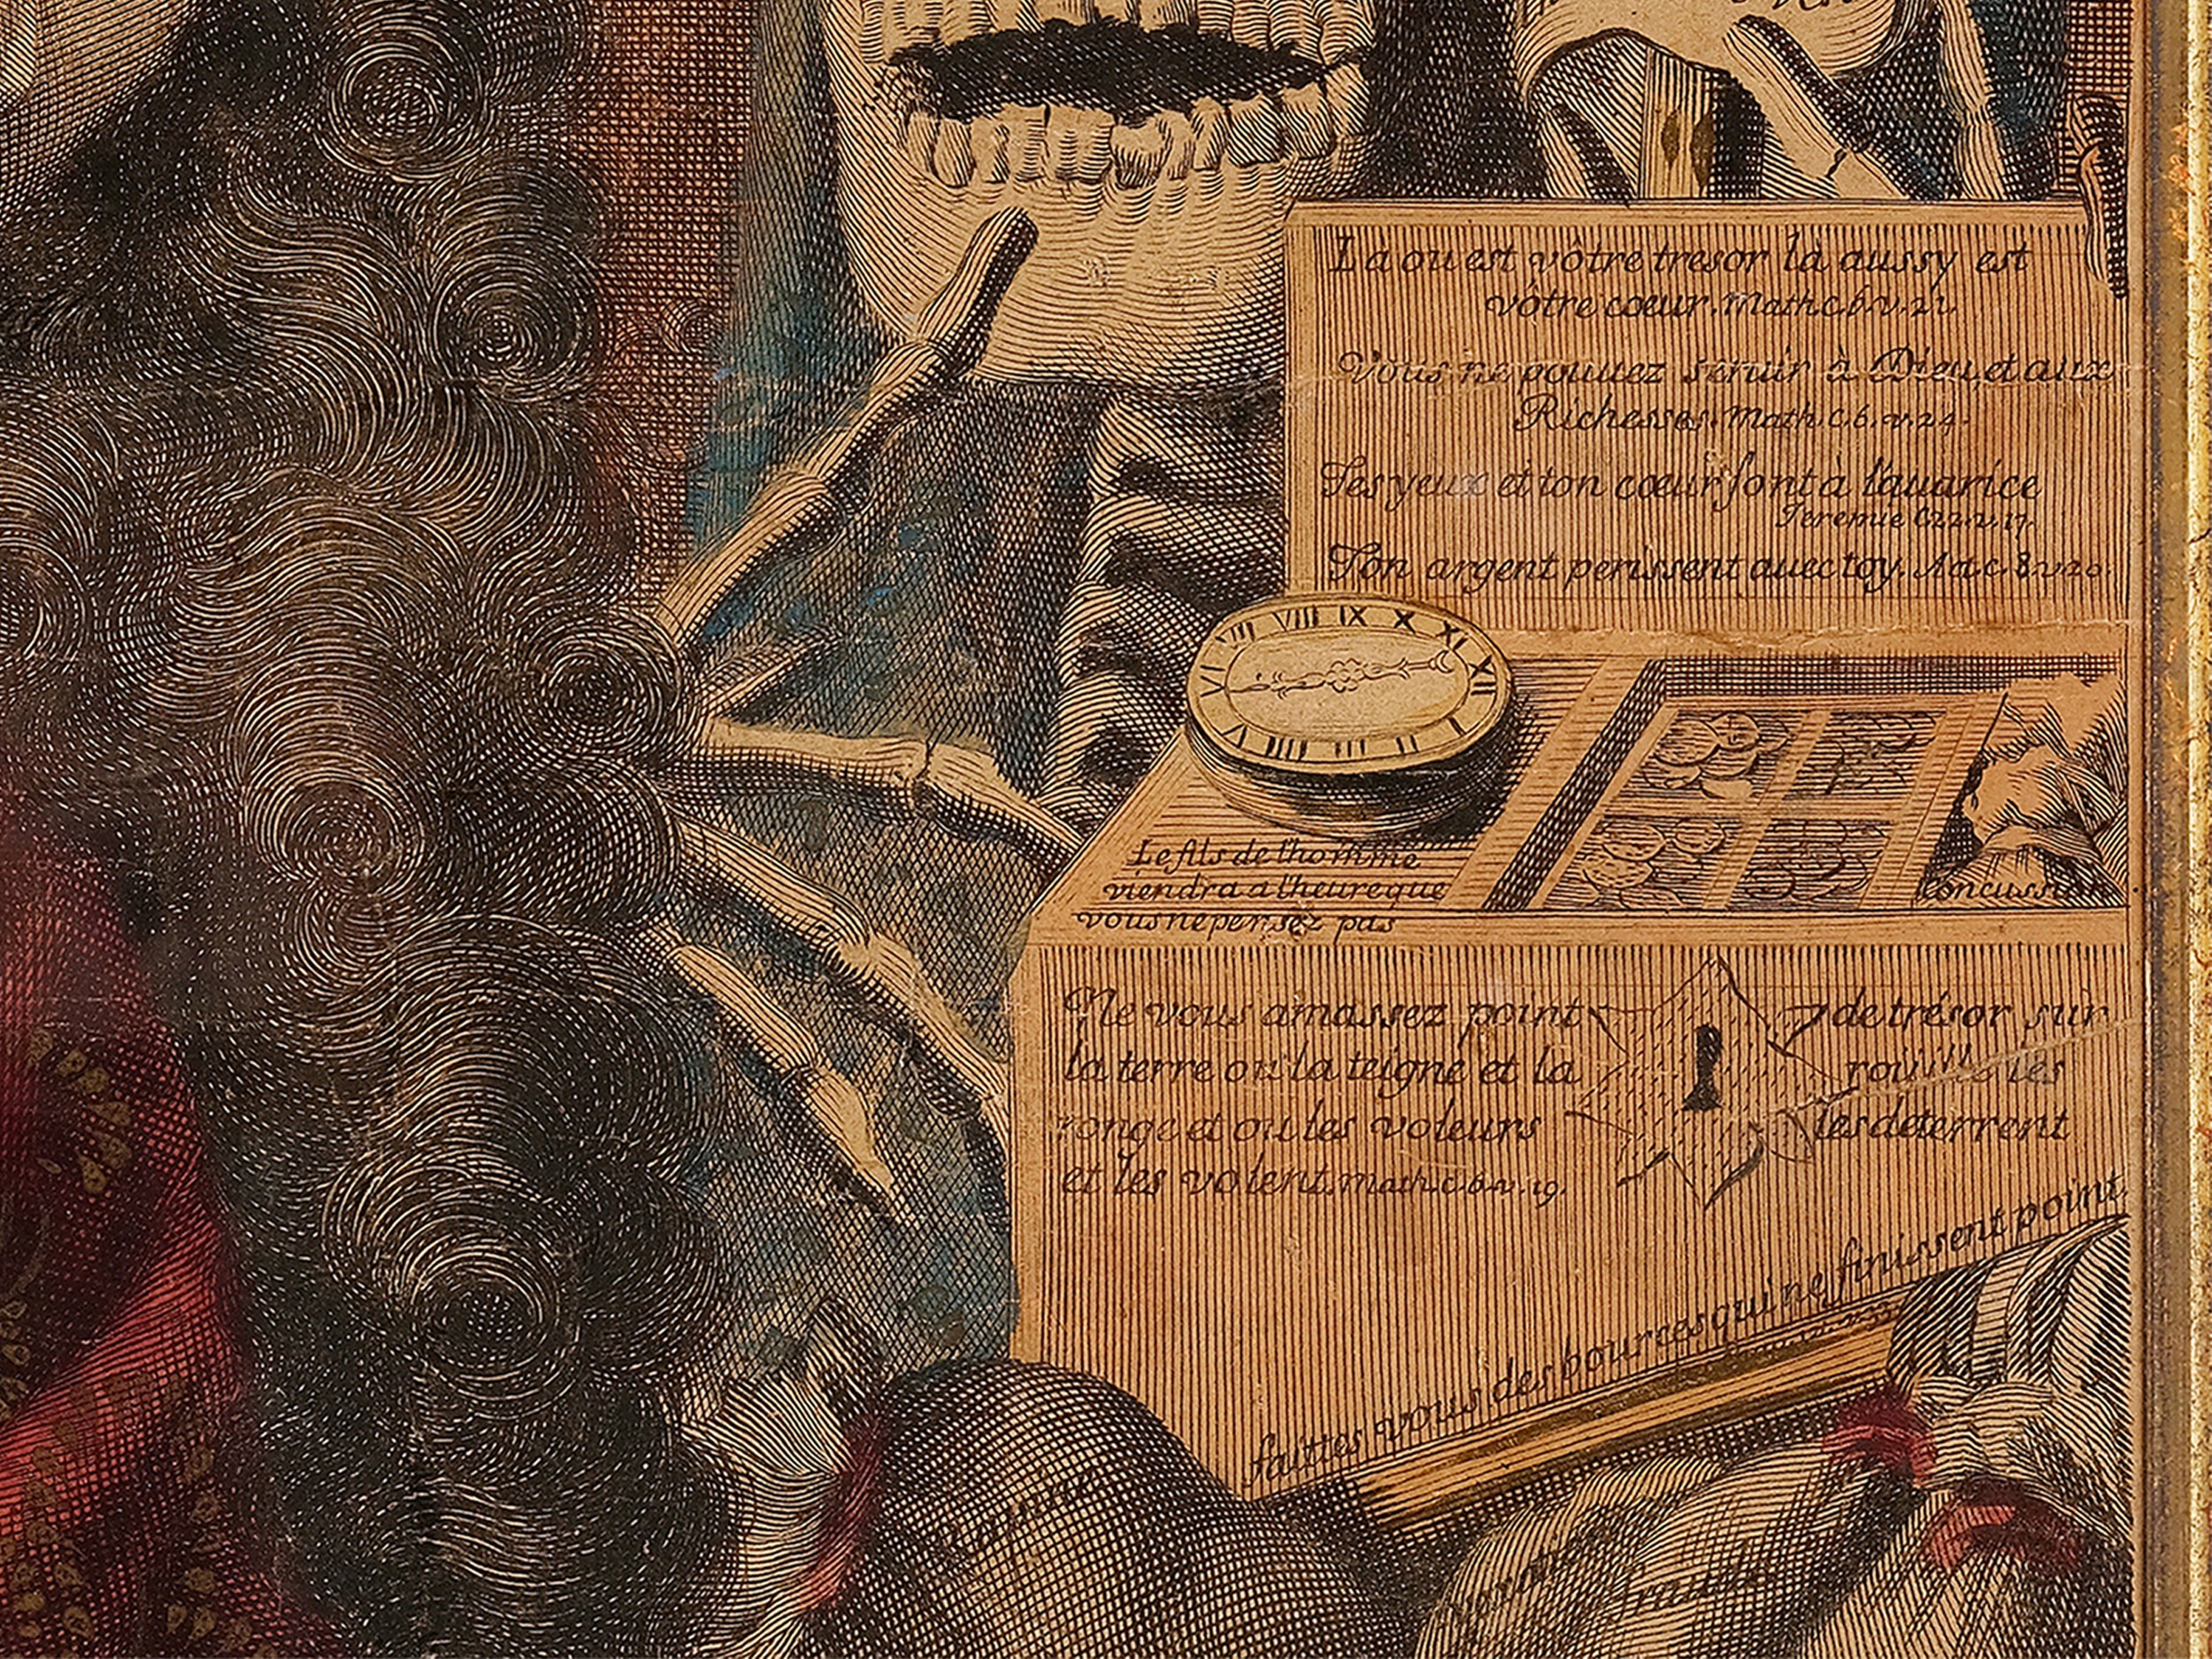 La ou est vôtre tresor là aussy est
vôtre cœur. Math. c. 6. v. 21.
Vous ne pouuez seruir à Dieu, et aux
Richesses. Math. C. 6. v. 24.
Tes yeux et ton cœur sont à l'auarice
Jeremie C. 22. v. 17.
Ton argent perissent auec toy. Act. c. 8. v. 20.
VI VII VIII IX X XI XII
V IIII III II I
Le fils de l'homme
viendra a l'heure que
vous ne pensez pas
concussion
Ne vous amassez point de trésor sur
la terre ou la teigne et la rouille les
ronge et ou les voleurs les deterrent
et les volent. Math. c. 6. v. 19.
faittes vous des bources qui ne finissent point